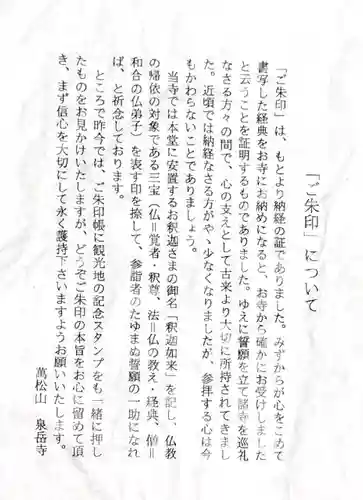 「ご朱印」について
「ご朱印」は、もとより納経の証でありました。みずからが心をこめて
書写した経典をお寺にお納めになると、お寺から確かにお受けしました
と云うことを証明するものでありました。ゆえに誓願を立て諸寺を巡礼
なさる方々の間で、心の支えとして古来より大切に所持されてきまし
た。近頃では納経なさる方がやゝ少なくなりましたが、参拝する心は今
もかわらないことでありましょう。
当寺では本堂に安置するお釈迦さまの御名「釈迦如来」を記し、仏教
の帰依の対象である三宝（仏＝覚者・釈尊、法＝仏の教え・経典、僧＝
和合の仏弟子）を表す印を捺して、参詣者のたゆまぬ誓願の一助になれ
ば、と祈念しております。
ところで昨今では、ご朱印帳に観光地の記念スタンプをも一緒に押し
たものをお見かけいたしますが、どうぞご朱印の本旨をお心に留めて頂
き、まず信心を大切にして永く護持下さいますようお願いいたします。
萬松山 泉岳寺